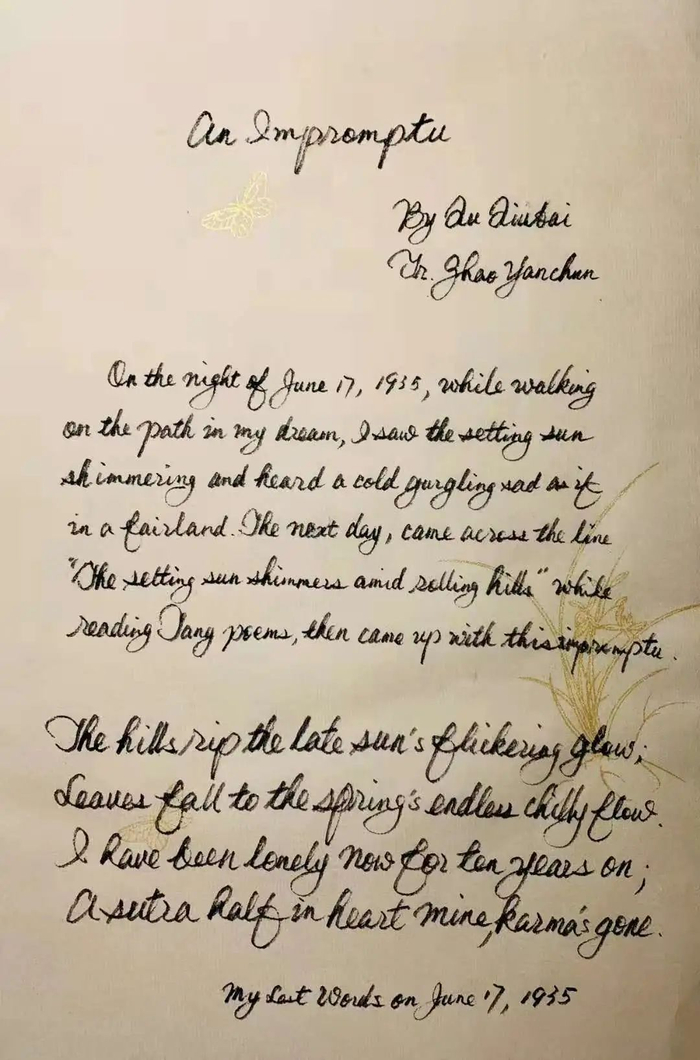 An Impromptu
By Qu Qiubai
Tr. Zhao Yanchun
On the night of June 17, 1935, while walking
on the path in my dream, I saw the setting sun
shimmering and heard a cold gurgling sad as if
in a fairland. The next day, came across the line
"The setting sun shimmers amid rolling hills" while
reading Tang poems, then came up with this impromptu.
The hills rip the late sun's flickering glow;
Leaves fall to the spring's endless chilly flow.
I have been lonely now for ten years on;
A sutra half in heart mine, karma's gone.
My Last Words on June 17, 1935